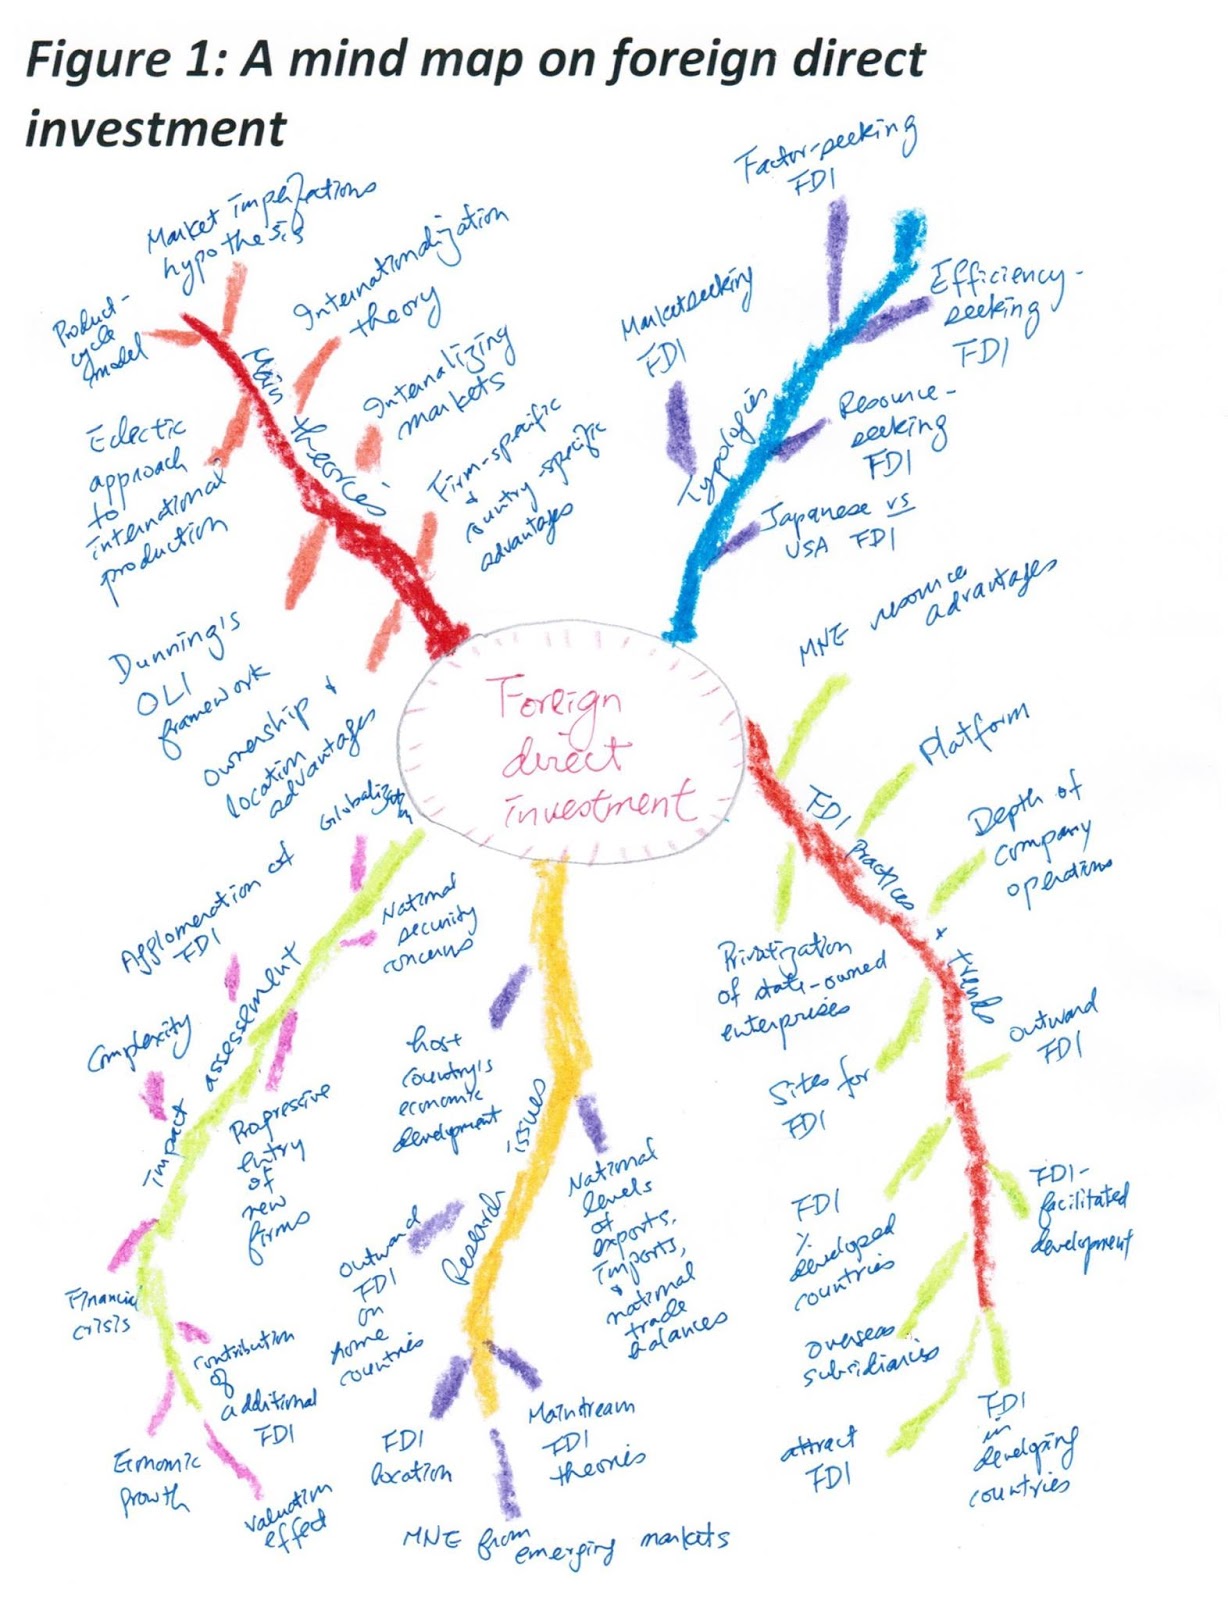 Figure 1: A mind map on foreign direct
investment
Foreign
direct
investment
Main theories
Product-
cycle
model
Market imperfections
hypothesis
Internationalization
theory
Internalizing
markets
Firm-specific
&
country-specific
advantages
Eclectic
approach
to
international
production
Dunning's
OLI
framework
Ownership &
location
advantages
Typologies
Factor-seeking
FDI
Efficiency-
seeking
FDI
Market seeking
FDI
Resource-
seeking
FDI
Japanese vs
USA FDI
FDI practices & trends
MNE resource
advantages
Platform
Depth of
company
operations
Privatization
of state-owned
enterprises
Outward
FDI
Sites for
FDI
FDI-
facilitated
development
FDI
developed
countries
overseas
subsidiaries
attract
FDI
FDI
in
developing
countries
Research issues
host
country's
economic
development
National
levels
of
exports,
imports,
&
national
trade
balances
outward
FDI
on
home
countries
FDI
location
Mainstream
FDI
theories
MNE from
emerging markets
impact assessment
National
security
concerns
Agglomeration of
FDI
Complexity
Progressive
entry
of
new
firms
Financial
crisis
contribution
of
additional
FDI
Economic
growth
valuation
effect